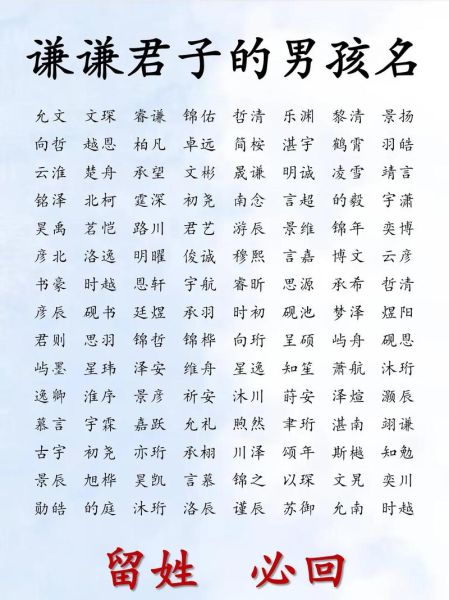 谦谦君子的男孩名
允文 文琛 睿谦 锦佑 哲清 乐渊 黎清 景扬
向哲 越恩 柏凡 卓远 简桉 湛宇 鹤霄 羽皓
云淮 楚舟 承望 文彬 晟谦 明诚 凌雪 靖言
铭泽 北柯 霆深 初尧 南念 言超 的毅 宇潇
昊禹 茗恺 路川 君艺 游辰 景维 锦年 奕博
彦北 洛逸 明曜 俊诚 穆熙 言嘉 博文 云彦
书豪 时越 恩轩 宇航 睿昕 思源 承希 哲清
彦辰 砚书 廷煜 承羽 时初 砚池 梦泽 煜阳
君则 思羽 锦哲 锦桦 向珩 呈硕 屿舟 砚恩
屿墨 星玮 泽安 维舟 星逸 知笙 萧航 沐珩
逸卿 淮序 景彦 祈安 沐川 莳安 泽煊 灏辰
慕言 宇霖 嘉跃 允礼 煦然 聿珩 湛南 翊谦
古宇 初尧 亦珩 承栩 川泽 颂年 斯樾 知勉
景辰 旭桦 昊凯 言慕 锦之 以琛 文旯 奕川
勋皓 的庭 沐珩 洛辰 谨辰 苏御 允南 时越
留姓 必回